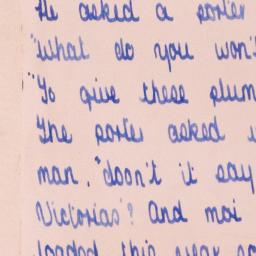 He asked a porter
"What do you won't
"To give these plum
The porter asked
man. "doon't it say
Victorias'? And moi
loaded this year so